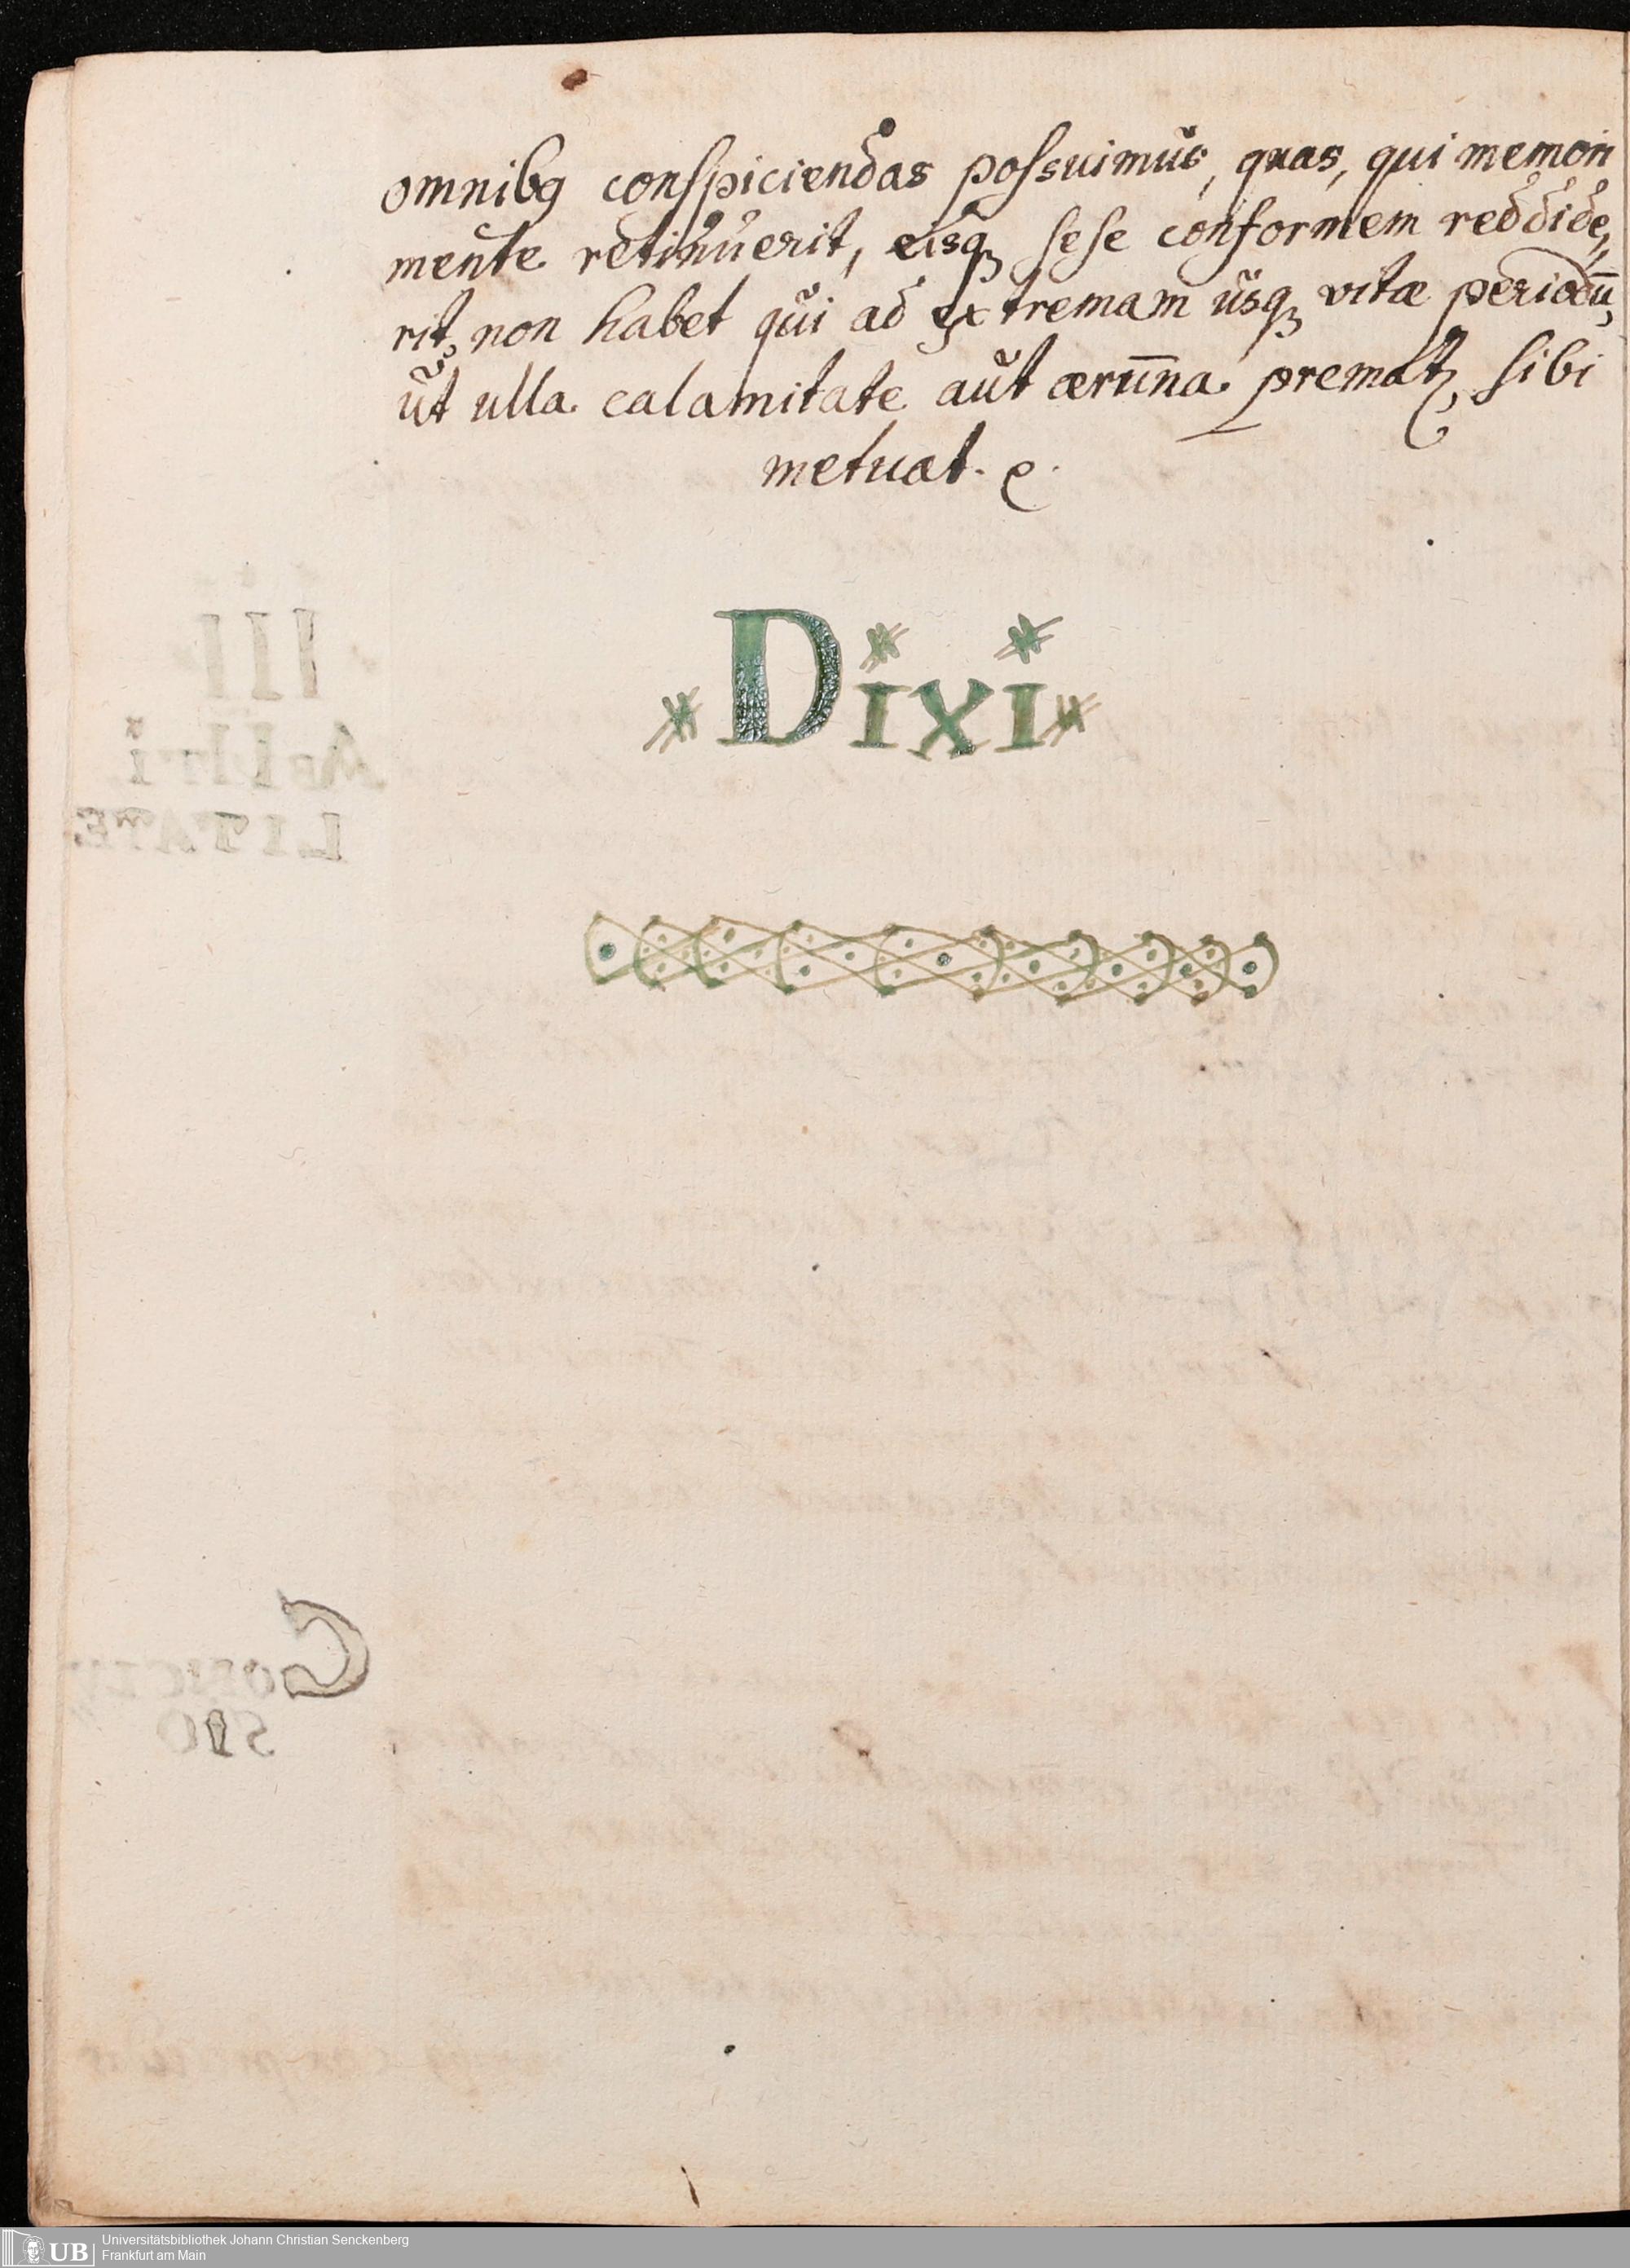 omnibꝰ conspiciendas possuimus, quas, qui memori
mente retinuerit, eisqꝫ sese conformem reddide,
rit, non habet qui ad extremam usqꝫ vitæ periodū,
ut ulla calamitate aut ærum̄na prematꝫ, sibi
metuat.
Dixi
Universitätsbibliothek Johann Christian Senckenberg
UB Frankfurt am Main